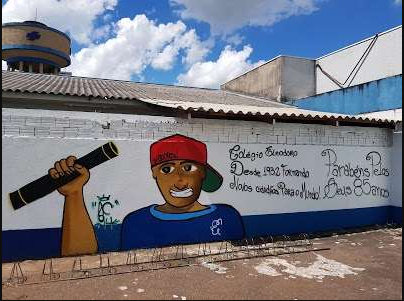 Colégio Eurodamo
Desde 1932 Formando
Nobs cidadãos Para o Mundo!
Parabens Pelos
Seus 85 anos